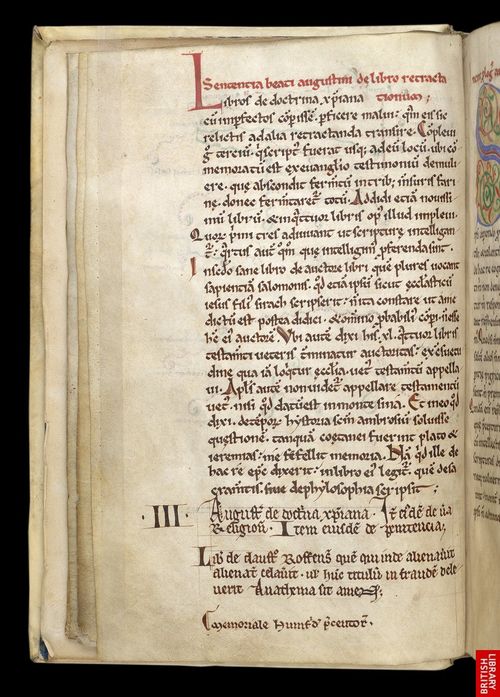 Sententia beati augustini de libro retracta
tionum;
Libros de doctrina xp̄iana
cū imp̄fectos cōp̄issē. p̄ficere malui. quā eis sic
relictis ad alia retractanda transire. Cōpleui
g̊ terciū. q̊ scriptꝰ fuerat usq; ad eū locū. ubi cō
memoratū est ex euuanglio testimoniū de muli
ere. que abscondit fermtū in trib; mēsuris fari
ne. donec fermtaret̄ totū. Addidi etiā nouissi
mū librū. & inq̇ttuor libris opꝰ illud impleui.
Quorꝫ p̄mi tres adiuuant ut scripture intelligan
t̄. q̇rtus aut̄ q̊m que intelligimꝰ p̄ferenda sint.
In scdo sane libro de auctore libri quē plures uocant
sapientiā salomonis. qd̄ etiā ipsū sicut ecclasticū
iesus filiꝰ sirach scripserit. n̄ ita constare ut a me
dictū est postea didici. & omino p̄babiliꝰ cōp̄i n̄ esse
hc̄ eiꝰ auctorē. Vbi autē dixi his .xl. q̇ttuor libris
testam̄ti ueteris t̄minatur auctoritas. ex c̄suetu
dine qua iā loq̇tur ecclia. uetꝰ testam̄tū appella
ui. Apl̄s autē non uidet̄ appellare testamentū
uetꝰ. nisi qd̄ datū est in monte sina. Et in eo qd̄
dixi. de tēporꝫ hystoria sc̄m ambrosiū soluisse
questionē. tanquā coetanei fuerint plato &
ieremias. me fefellit memoria. Nā qd̄ ille de
hac re ep̄c dixerit. in libro eiꝰ legit̄. quē de sa
cram̄tis. siue de phylosophia scripsit;
.III. Augusť. de doctrina xp̄iana. Iť eiꝰdē de ūa
Religioň. Item eiusdē de penitencia;
Liƀ de clausť. Roffenš. quē qui inde alienauit
alienať celauit. uł hūc titulū in fraudē dele
uerit Anathema sit amen.
Memoriale Humf̄di p̄centoř.
BRITISH
LIBRARY